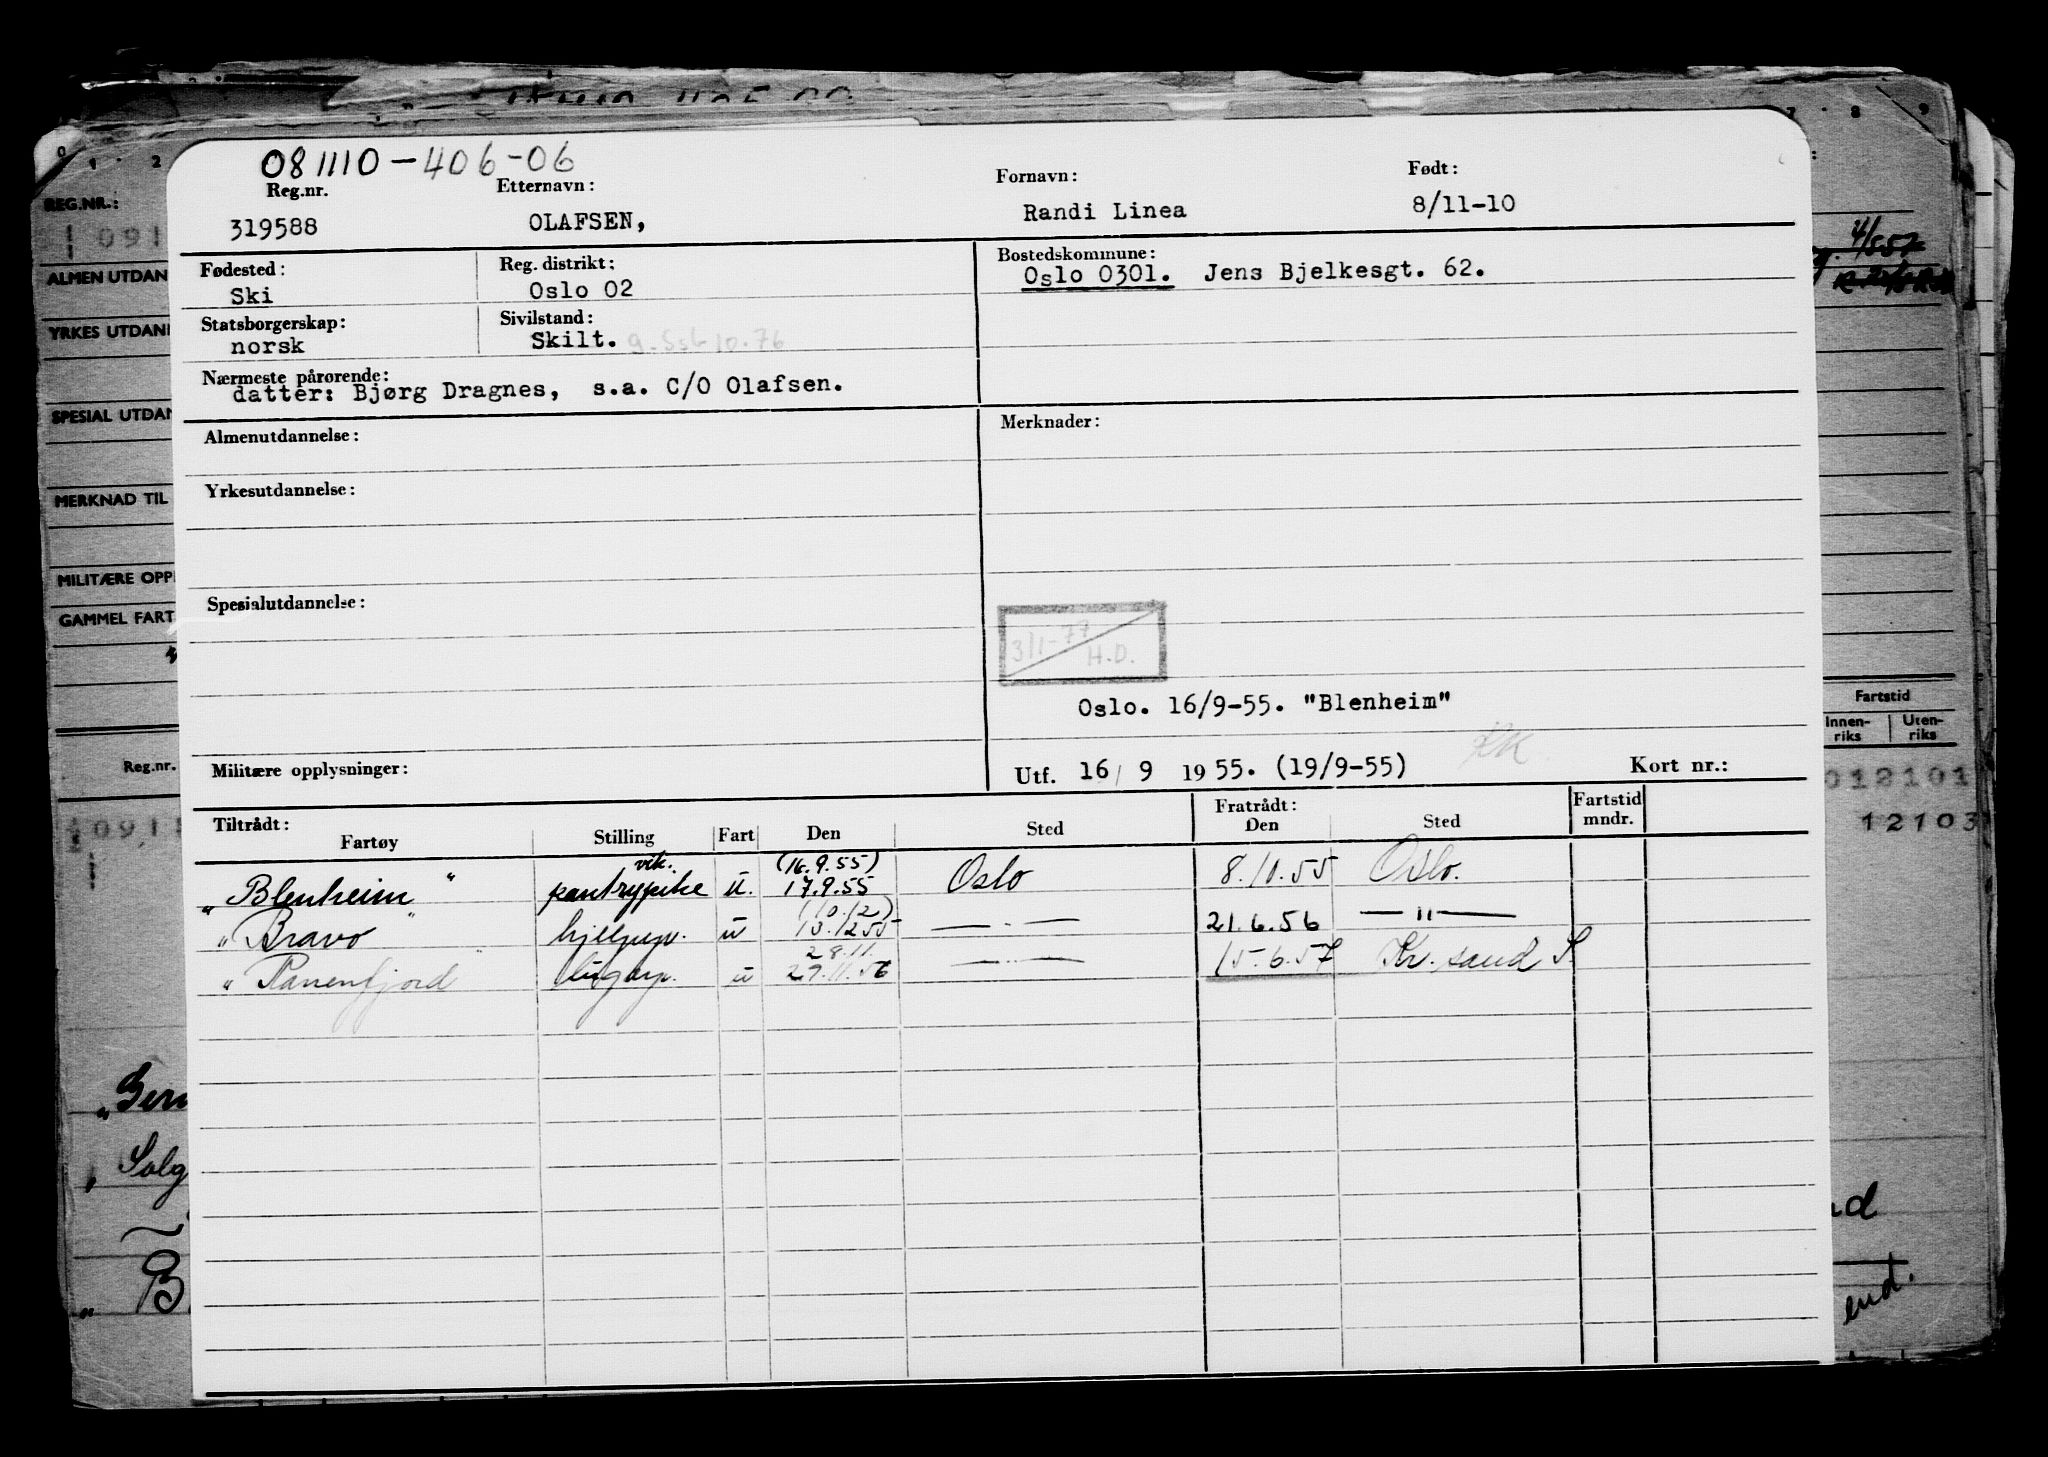 081110-406-06
Reg.nr. Etternavn: Fornavn: Født:
319588 OLAFSEN, Randi Linea 8/11-10
Fødested: Reg. distrikt: Bostedskommune:
Ski Oslo 02 Oslo 0301. Jens Bjelkesgt. 62.
Statsborgerskap: Sivilstand:
norsk Skilt.
Nærmeste pårørende:
datter: Bjørg Dragnes, s.a. C/O Olafsen.
Almenutdannelse: Merknader:
Yrkesutdannelse:
Spesialutdannelse:
3/1-77
H.D.
Oslo. 16/9-55. "Blenheim"
Militære opplysninger: Utf. 16/9 1955. (19/9-55) Kort nr.:
Tiltrådt: Fratrådt: Fartstid
Fartøy Stilling Fart Den Sted Den Sted mndr.
vik. (16.9.55)
"Blenheim" pantrypike u. 17.9.55 Oslo 8.10.55 Oslo.
(10/12)
"Bravo" u 13.12.55 — " — 21.6.56 — " —
28.11.
"Ranenfjord" lugarp. u 29.11.56 — " — 15.6.57 Kr.sand S.
REG.NR.:
091
ALMEN UTDAN
YRKES UTDAN
SPESIAL UTDAN
MERKNAD TIL
MILITÆRE OPP
GAMMEL FART
Reg.nr.
091
Fartstid
Innen-riks Uten-riks
012101
12103
7 8 9
0 1 2